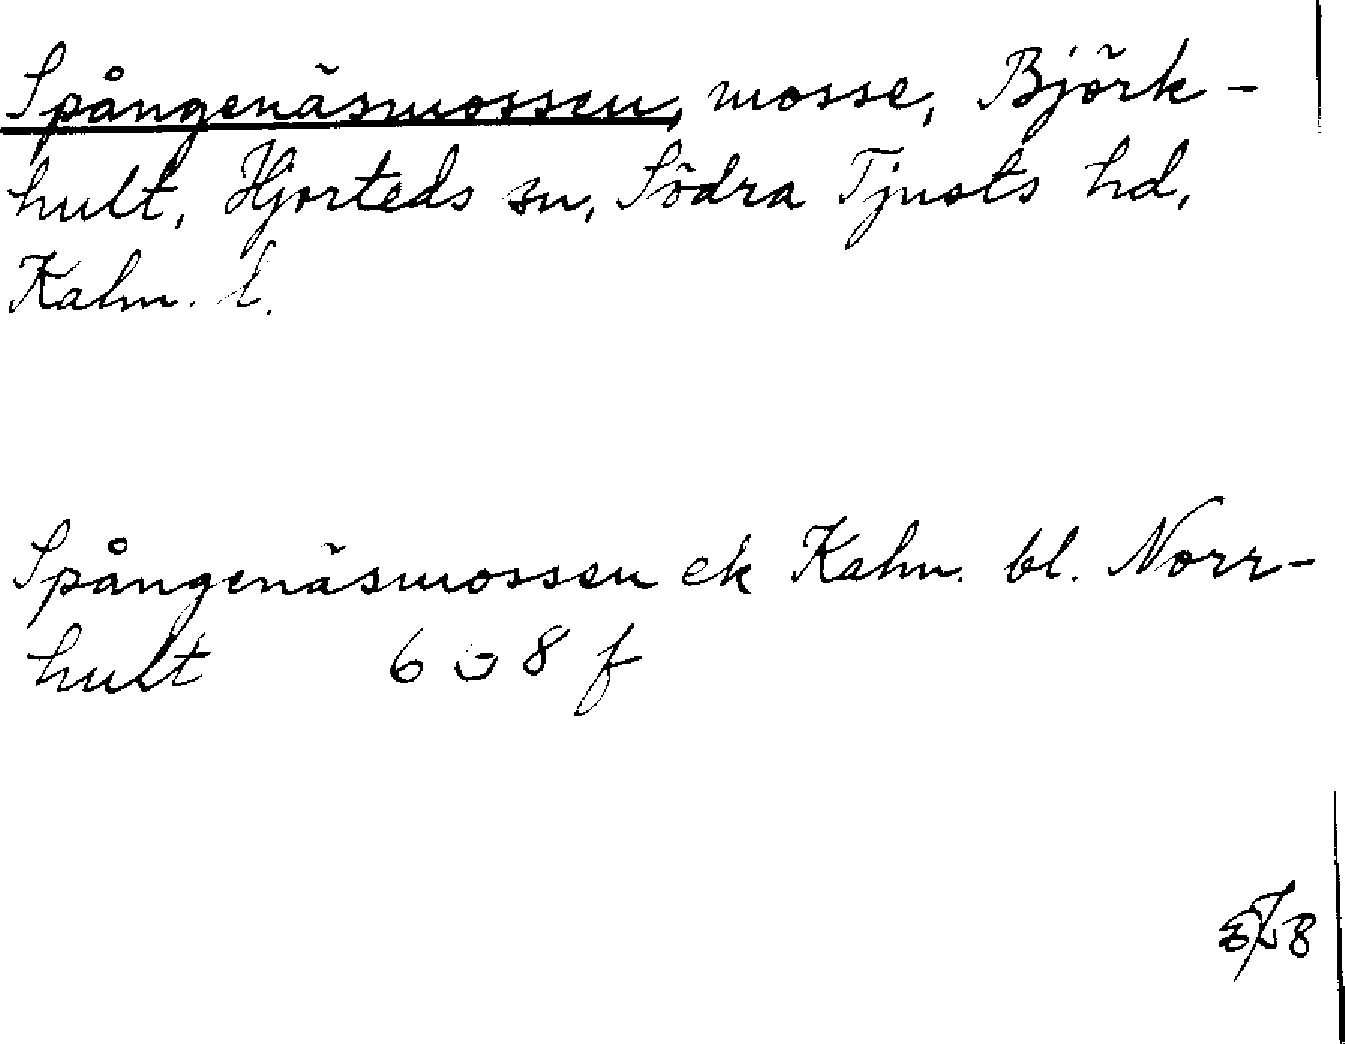 Spångenäsmossen, mosse, Björk-
hult, Hjorteds sn, Södra Tjusts hd,
Kalm. l.
Spångenäsmossen ek Kalm. bl. Norr-
hult 6 8 f